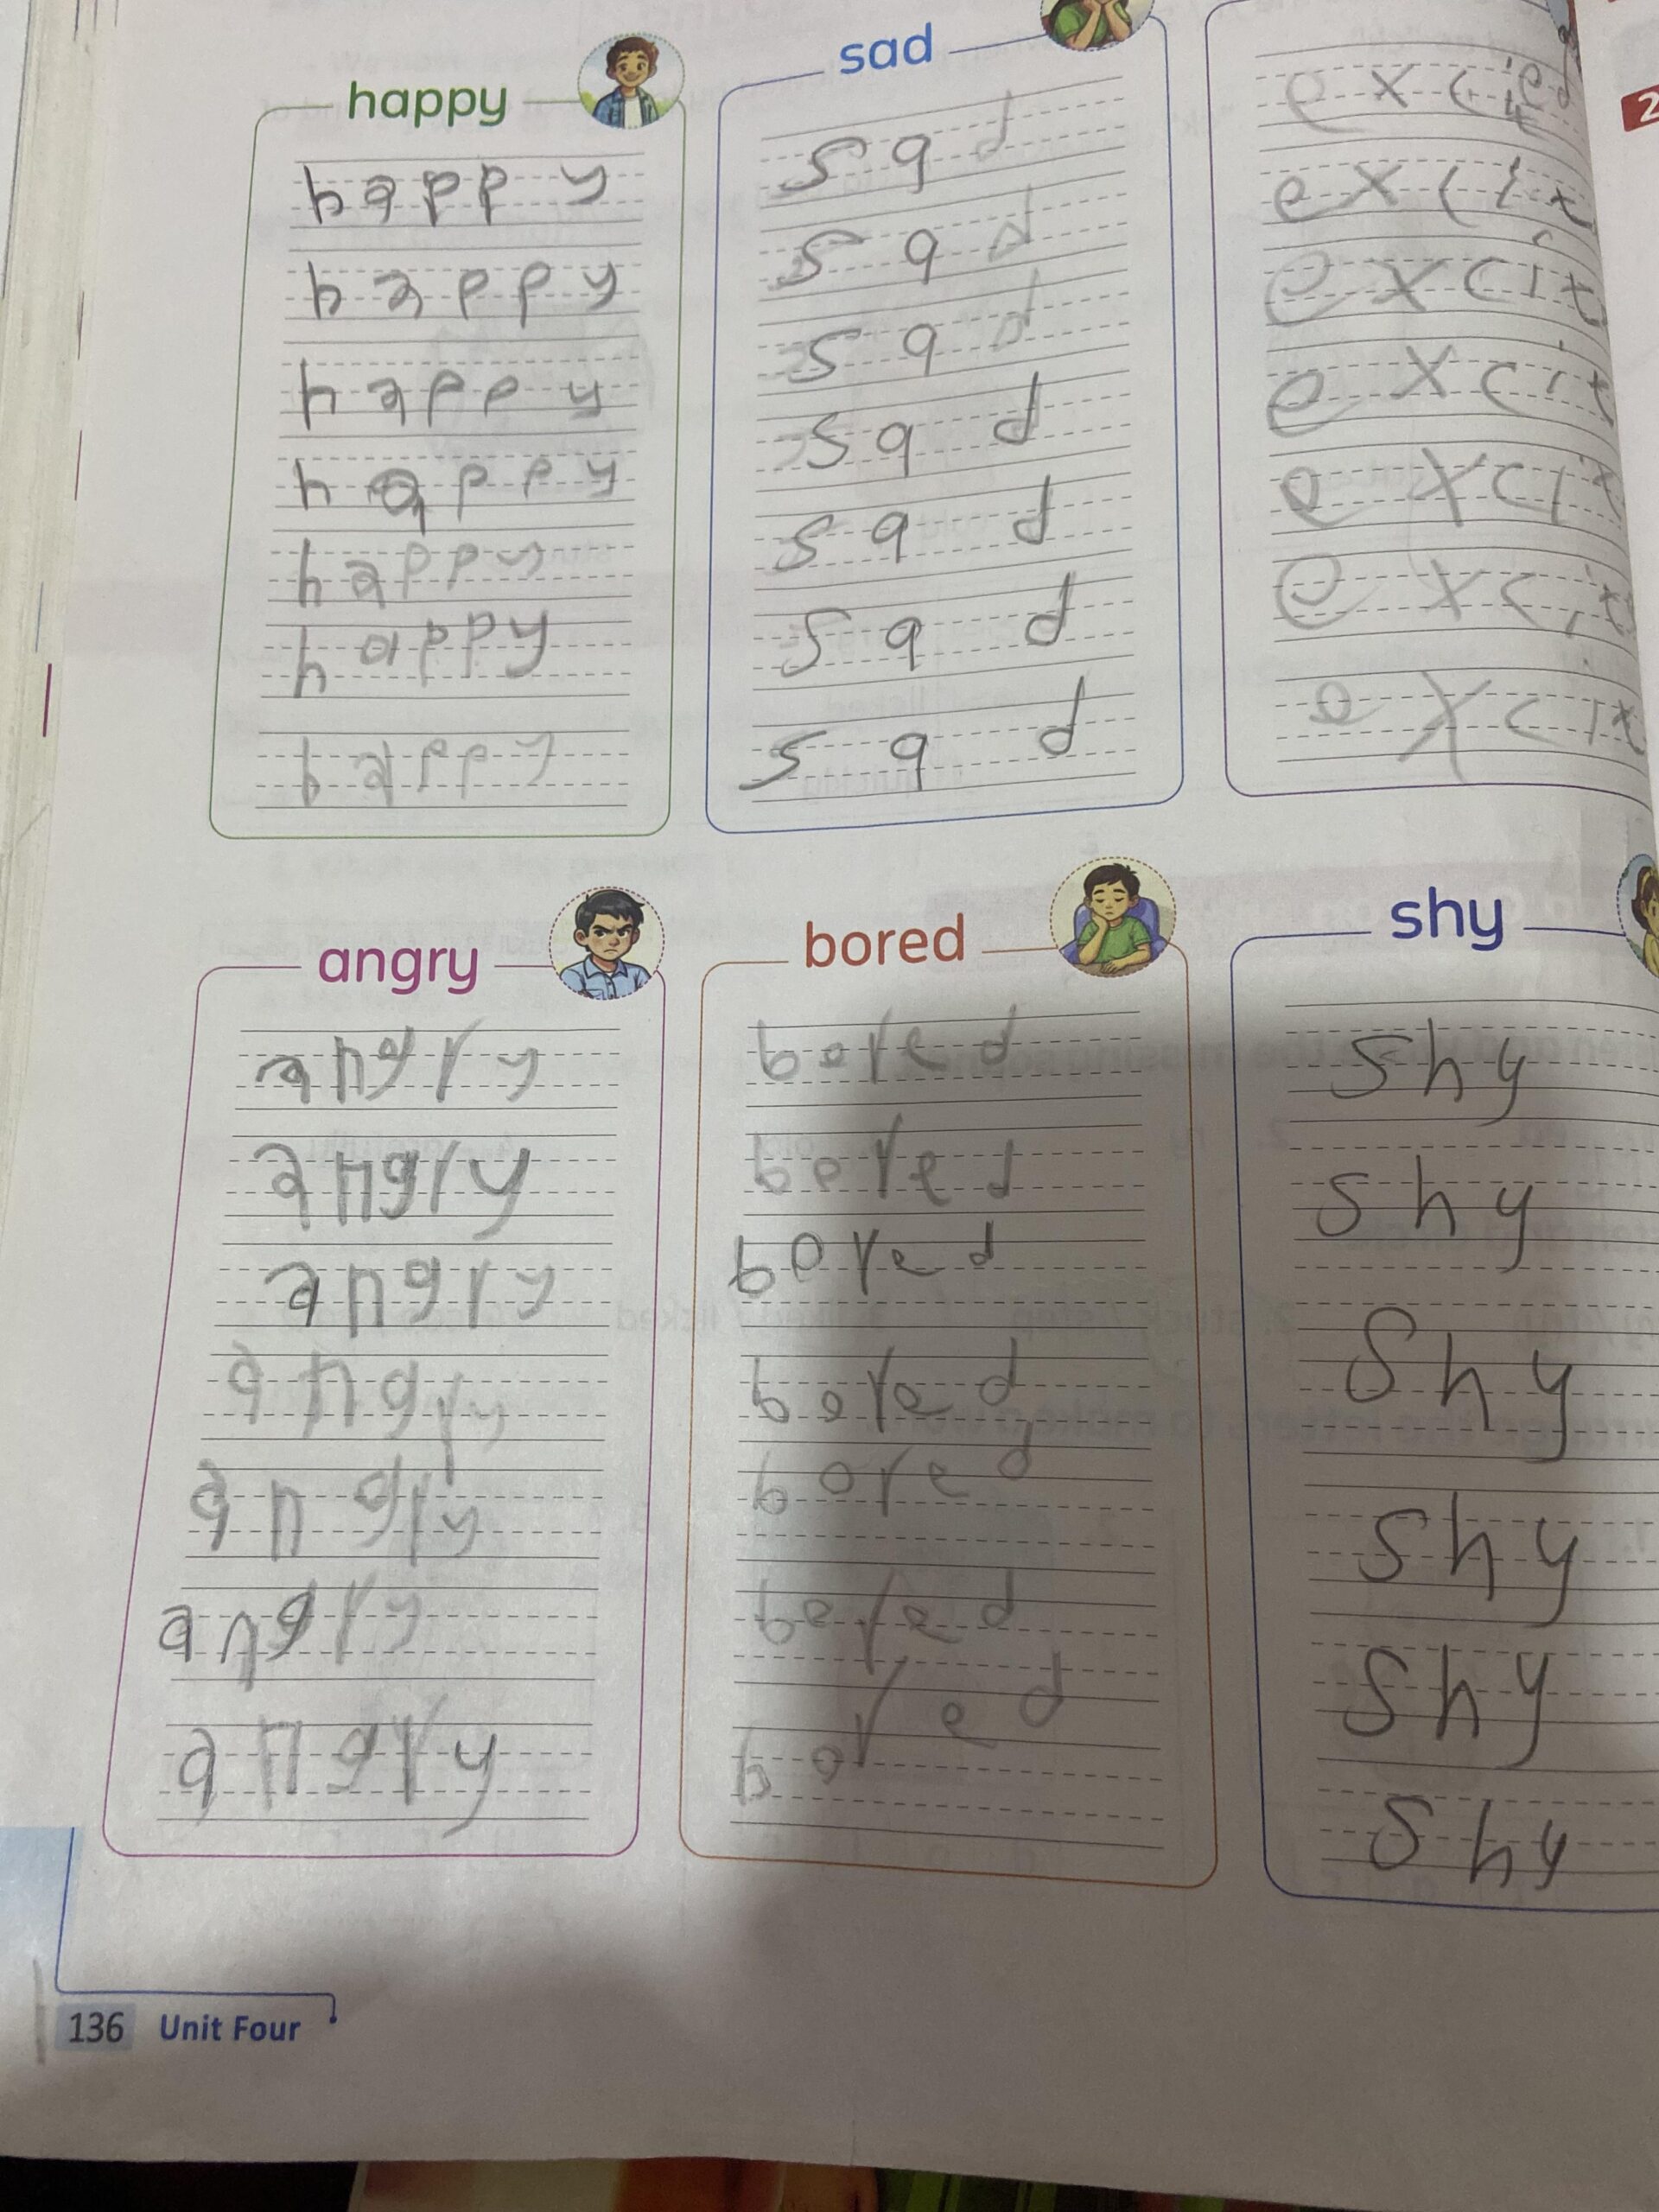 happy
happy
happy
happy
happy
happy
happy
happy
sad
sad
sad
sad
sad
sad
sad
sad
excited
excit
excit
excit
excit
excit
excit
2
angry
angry
angry
angry
angry
angry
angry
angry
bored
bored
bored
bored
bored
bored
bored
bored
shy
shy
shy
shy
shy
shy
shy
136 Unit Four